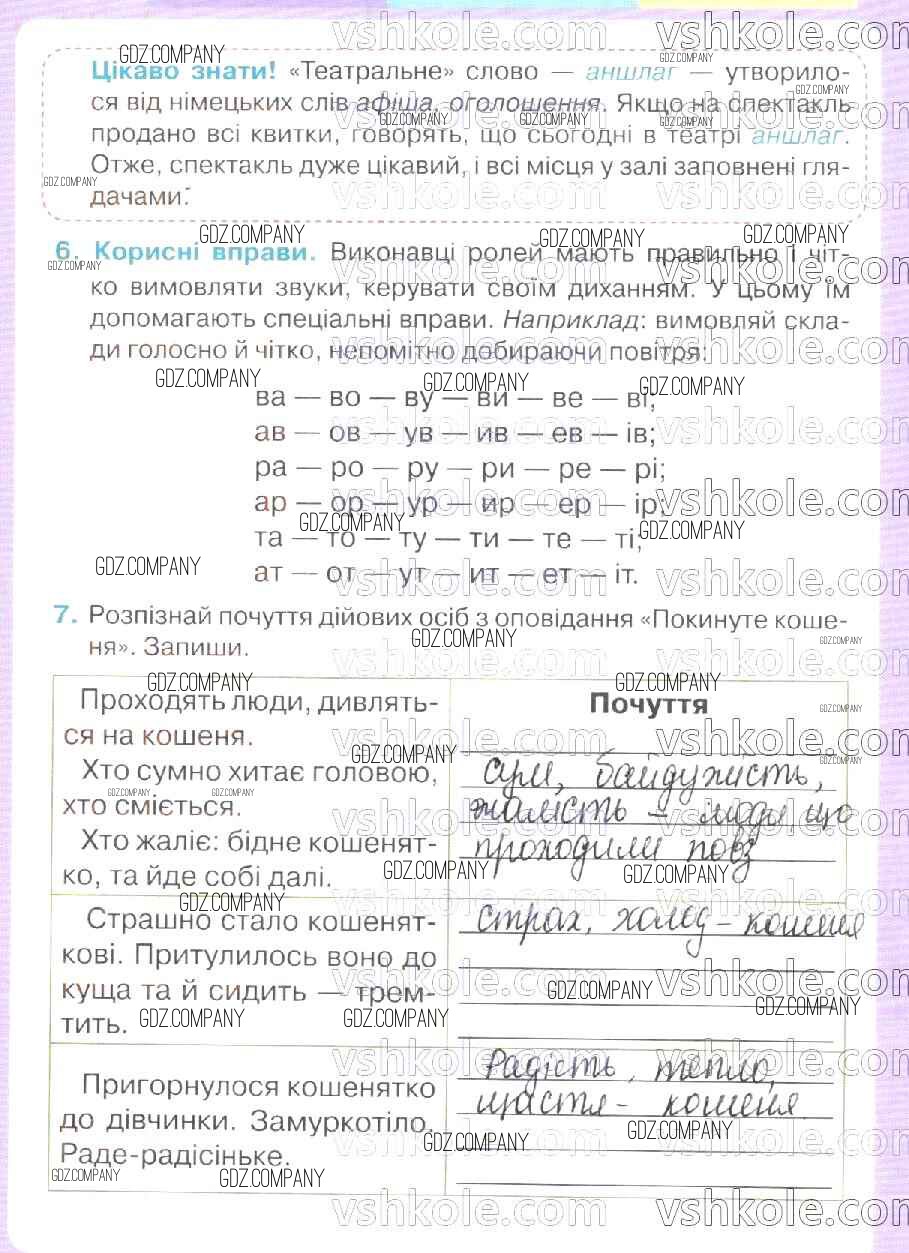 Цікаво знати! «Театральне» слово — аншлаг — утворило-
ся від німецьких слів афіша, оголошення. Якщо на спектакль
продано всі квитки, говорять, що сьогодні в театрі аншлаг.
Отже, спектакль дуже цікавий, і всі місця у залі заповнені гля-
дачами.
6. Корисні вправи. Виконавці ролей мають правильно і чіт-
ко вимовляти звуки, керувати своїм диханням. У цьому їм
допомагають спеціальні вправи. Наприклад: вимовляй скла-
ди голосно й чітко, непомітно добираючи повітря:
ва — во — ву — ви — ве — ві;
ав — ов — ув — ив — ев — ів;
ра — ро — ру — ри — ре — рі;
ар — ор — ур — ир — ер — ір;
та — то — ту — ти — те — ті;
ат — от — ут — ит — ет — іт.
7. Розпізнай почуття дійових осіб з оповідання «Покинуте коше-
ня». Запиши.
Проходять люди, дивлять-
ся на кошеня.
Хто сумно хитає головою,
хто сміється.
Хто жаліє: бідне кошенят-
ко, та йде собі далі.
Почуття
сум, байдужість,
жалість – люди, що
проходили повз
Страшно стало кошенят-
кові. Притулилось воно до
куща та й сидить — трем-
тить.
страх, холод – кошеня
Пригорнулося кошенятко
до дівчинки. Замуркотіло.
Раде-радісіньке.
Радість, тепло,
щастя – кошеня
GDZ.COMPANY
vshkole.com